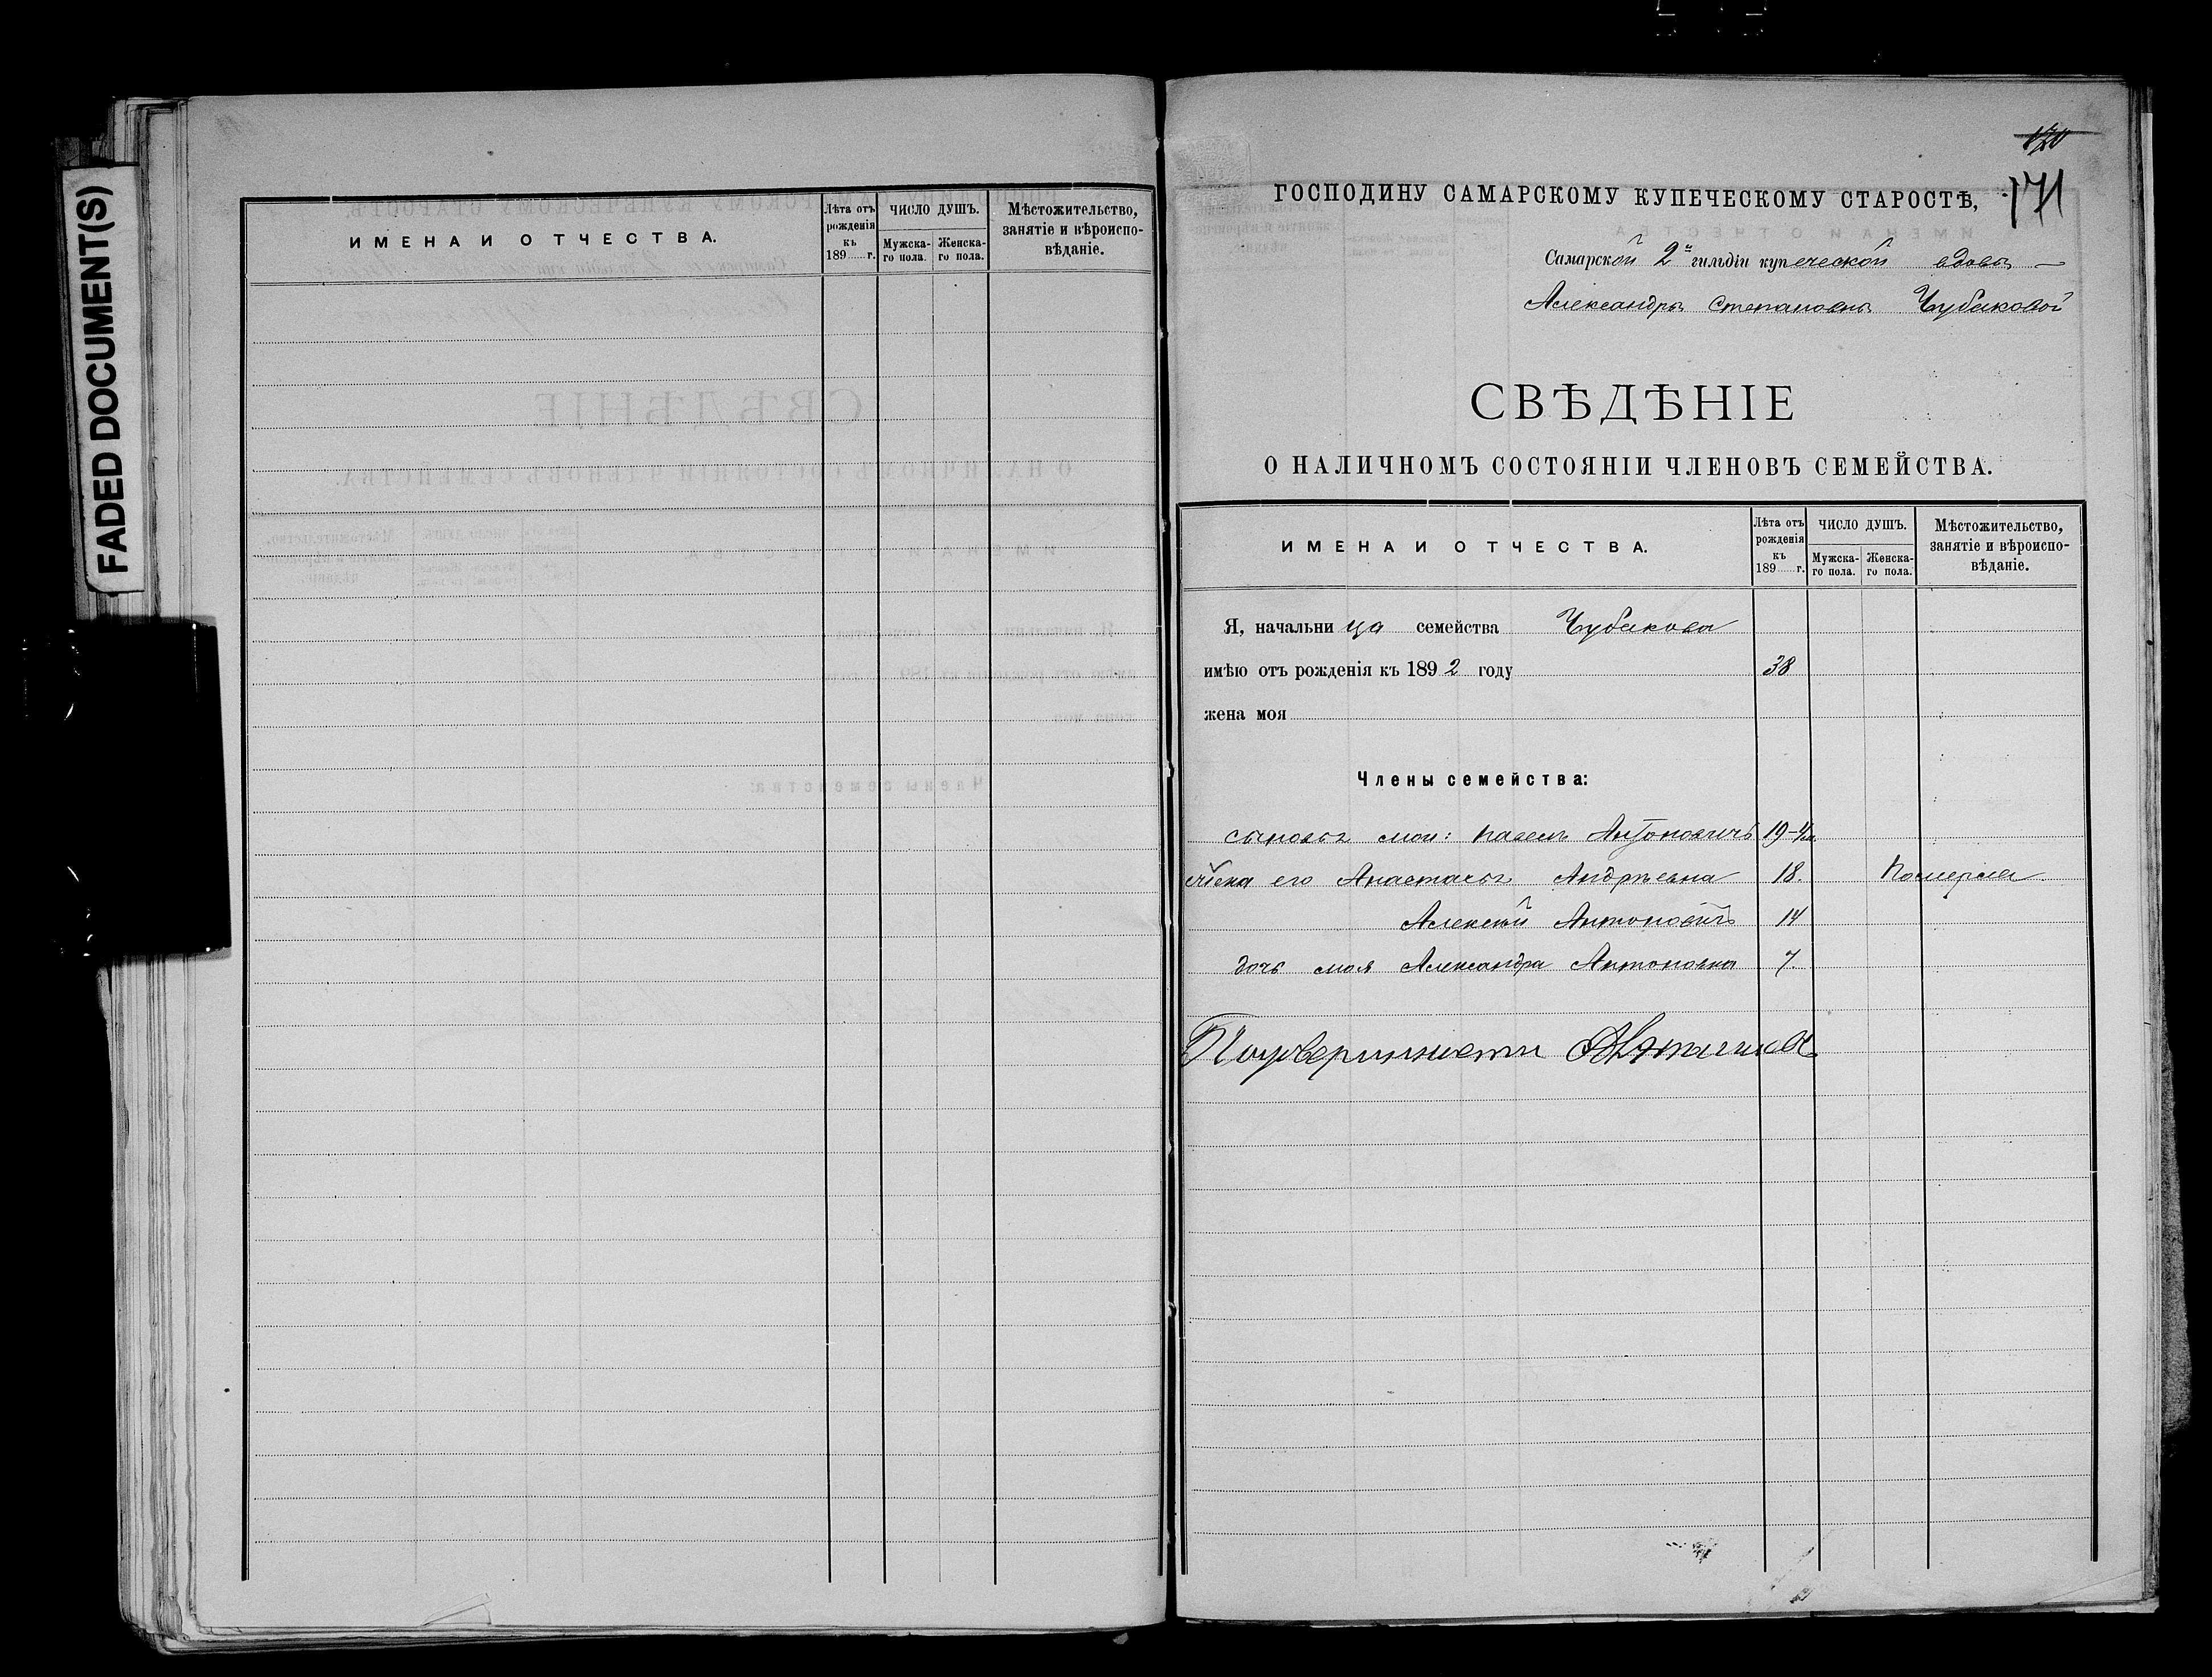 FADED DOCUMENT(S)
ИМЕНА И ОТЧЕСТВА.
Лѣта отъ рожденія къ 189 г.
ЧИСЛО ДУШЪ.
Мужска-
го пола.
Женска-
го пола.
Мѣстожительство,
занятіе и вѣроиспо-
вѣданіе.
170
171
ГОСПОДИНУ САМАРСКОМУ КУПЕЧЕСКОМУ СТАРОСТѢ,
Самарской 2й гильдіи купеческой вдовы
Александры Степановны Чубаковой
СВѢДѢНІЕ
О НАЛИЧНОМЪ СОСТОЯНІИ ЧЛЕНОВЪ СЕМЕЙСТВА.
ИМЕНА И ОТЧЕСТВА.
Лѣта отъ рожденія къ 189 г.
ЧИСЛО ДУШЪ.
Мужска-
го пола.
Женска-
го пола.
Мѣстожительство,
занятіе и вѣроиспо-
вѣданіе.
Я, начальница семейства Чубакова
имѣю отъ рожденія къ 1892 году 38
жена моя
Члены семейства:
сыновья мои: Павелъ Антоновичъ 19
жена его Анастасья Андреевна 18. Померла
Алексѣй Антоновичъ 14
дочь моя Александра Антоновна 7.